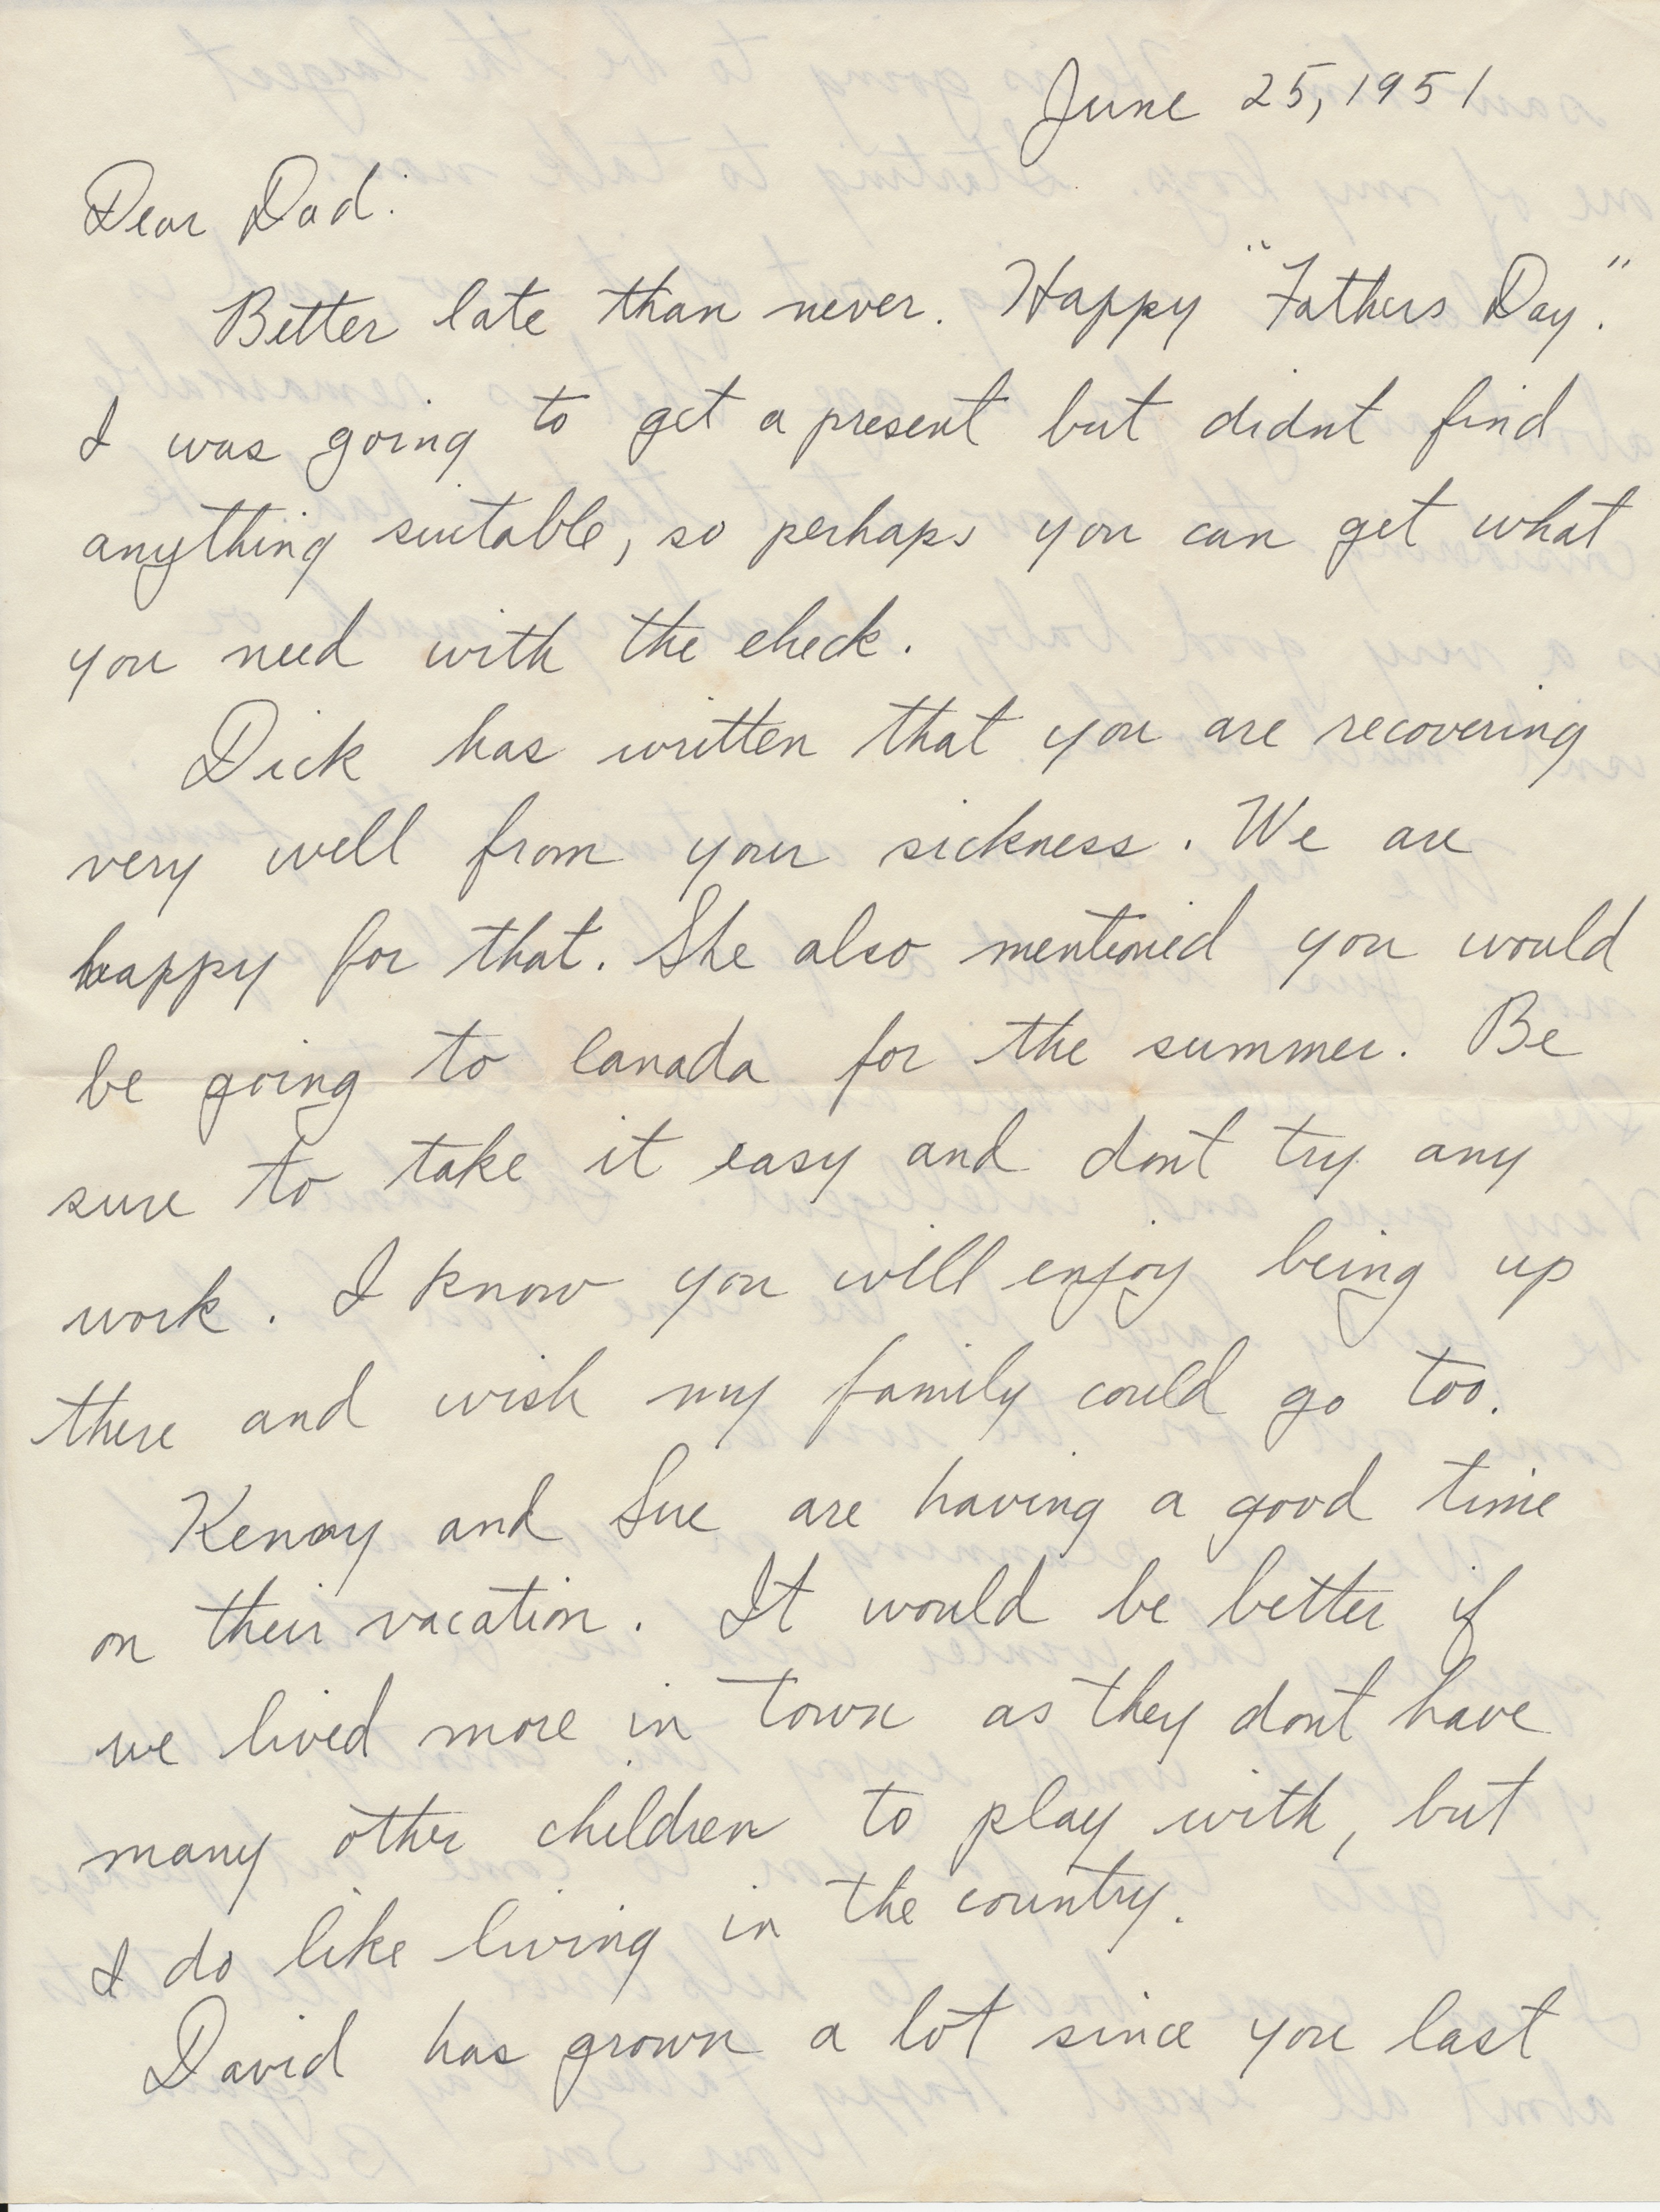 June 25, 1951
Dear Dad:
Better late than never. Happy "Fathers Day."
I was going to get a present but didnt find
anything suitable, so perhaps you can get what
you need with the check.
Dick has written that you are recovering
very well from your sickness. We are
happy for that. She also mentioned you would
be going to Canada for the summer. Be
sure to take it easy and dont try any
work. I know you will enjoy being up
there and wish my family could go too.
Kenny and Sue are having a good time
on their vacation. It would be better if
we lived more in town as they dont have
many other children to play with, but
I do like living in the country.
David has grown a lot since you last